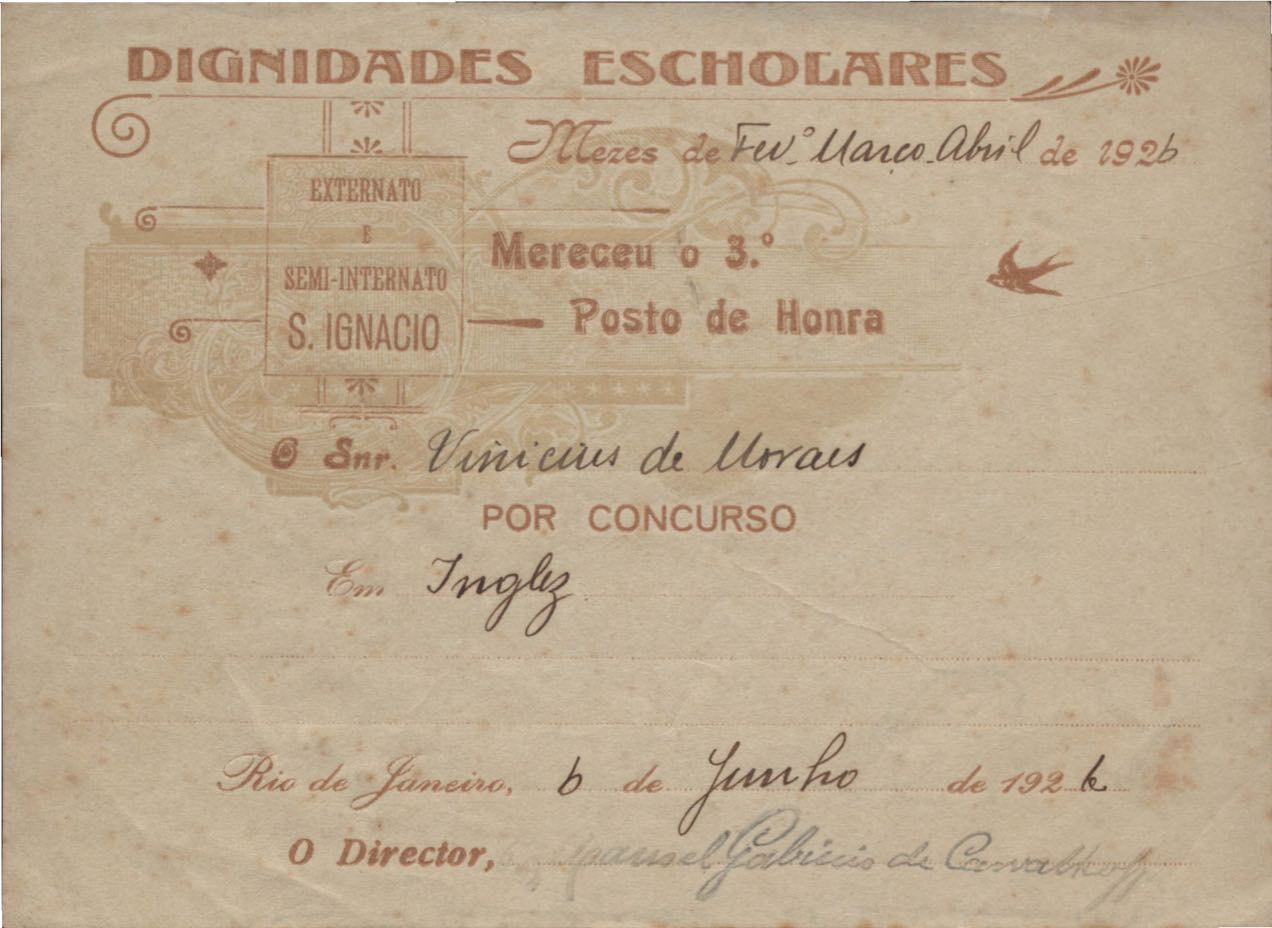 DIGNIDADES ESCHOLARES
Mezes de Fevº Março Abril de 1926
EXTERNATO
E
SEMI-INTERNATO
S. IGNACIO
Mereceu o 3.º
Posto de Honra
O Snr. Vinicius de Moraes
POR CONCURSO
Em Inglez
Rio de Janeiro, 6 de Junho de 1926
O Director, de Carvalho